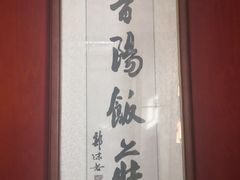 晉陽飯莊
郭沫若